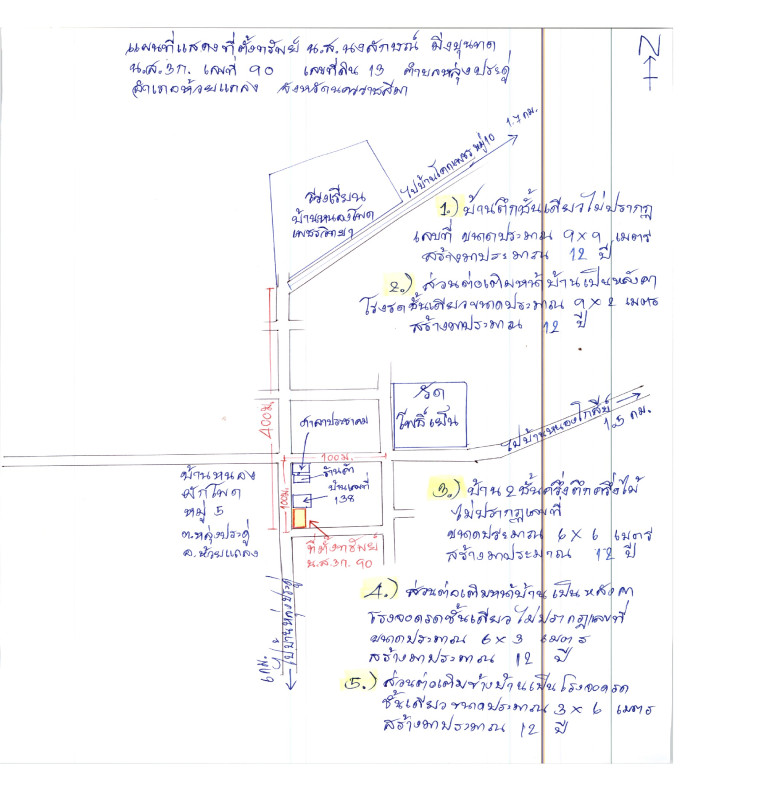 แผนที่แสดงที่ตั้งทรัพย์ น.ส. นงลักษณ์ มิ่งขุนทด
น.ส.3ก. เลขที่ 90 เลขที่ดิน 13 ตำบลหลุ่งประดู่
อำเภอห้วยแถลง จังหวัดนครราชสีมา
N
1.7 กม.
ไปบ้านโคกเพชร หมู่ 10
โรงเรียน
บ้านหนองโพด
เพชรวิทยา
1.) บ้านตึกชั้นเดียวไม่ปรากฏ
เลขที่ ขนาดประมาณ 9 x 9 เมตร
สร้างมาประมาณ 12 ปี
2.) ส่วนต่อเติมหน้าบ้านเป็นหลังคา
โรงรถชั้นเดียวขนาดประมาณ 9 x 2 เมตร
สร้างมาประมาณ 12 ปี
400ม.
วัด
โพธิ์เย็น
ศาลาประชาคม
ไปบ้านหนองไก่
1.5 กม.
100ม.
ร้านค้า
บ้านเลขที่
138
100ม.
บ้านหนอง
ผักโพด
หมู่ 5
ต.หลุ่งประดู่
อ.ห้วยแถลง
ที่ตั้งทรัพย์
น.ส.3ก. 90
3.) บ้าน 2 ชั้นครึ่งตึกครึ่งไม้
ไม่ปรากฏเลขที่
ขนาดประมาณ 6 x 6 เมตร
สร้างมาประมาณ 12 ปี
ไปบ้านหลุ่งประดู่
กม.
4.) ส่วนต่อเติมหน้าบ้าน เป็นหลังคา
โรงจอดรถชั้นเดียว ไม่ปรากฏเลขที่
ขนาดประมาณ 6 x 3 เมตร
สร้างมาประมาณ 12 ปี
5.) ส่วนต่อเติมข้างบ้านเป็นโรงจอดรถ
ชั้นเดียวขนาดประมาณ 3 x 6 เมตร
สร้างมาประมาณ 12 ปี